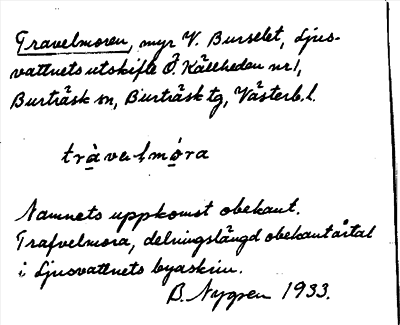 Travelmoren, myr V. Burselet, Ljus-
vattnets utskifte Ö. Källheden nr 1,
Burträsk sn, Burträsk tg, Västerb. l.
tràvalmóra
Namnets uppkomst obekant.
Trafvelmora, delningslängd obekant årtal
i Ljusvattnets byaskrin.
B. Nygren 1933.